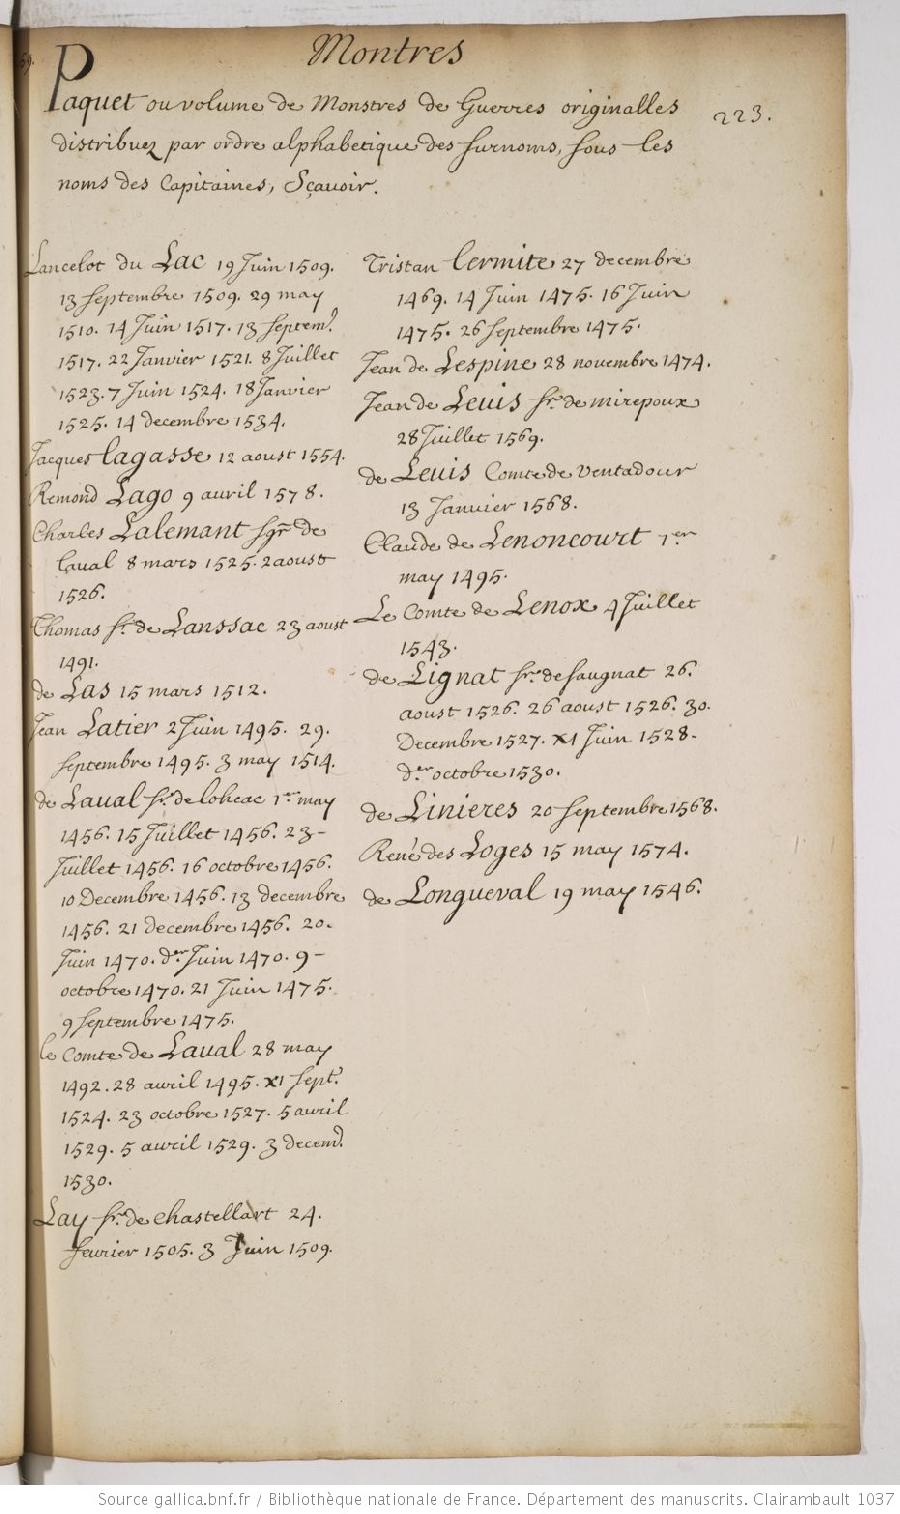 Montres
223.
Paquet ou volume de Monstres de Guerres originalles
distribuez par ordre alphabetique des surnoms, sous les
noms des Capitaines, Sçauoir.
Lancelot du Lac 19 Juin 1509.
13 septembre 1509. 29 may
1510. 14 Juin 1517. 13 septem.
1517. 22 Janvier 1521. 8 Juillet
1523. 7 Juin 1524. 18 Janvier
1525. 14 decembre 1534.
Jacques lagasse 12 aoust 1554.
Remond Lago 9 auril 1578.
Charles Lalemant sgr. de
laual 8 mars 1525. 2 aoust
1526.
Thomas sr. de Lanssac 23 aoust
1491.
de Las 15 mars 1512.
Jean Latier 2 Juin 1495. 29.
septembre 1495. 3 may 1514.
de Laual sr. de loheac 1er may
1456. 15 Juillet 1456. 23-
Juillet 1456. 16 octobre 1456.
10 Decembre 1456. 13 decembre
1456. 21 decembre 1456. 20.
Juin 1470. der. Juin 1470. 9-
octobre 1470. 21 Juin 1475.
9 septembre 1475.
le Comte de Laual 28 may
1492. 28 auril 1495. XI sept.
1524. 23 octobre 1527. 5 auril
1529. 5 auril 1529. 3 decem.
1530.
Lay sr. de chastellart 24.
feurier 1505. 3 Juin 1509.
Tristan lermite 27 decembre
1469. 14 Juin 1475. 16 Juin
1475. 26 septembre 1475.
Jean de Lespine 28 nouembre 1474.
Jean de Leuis sr. de mirepoux
28 Juillet 1569.
de Leuis Comte de Ventadour
13 Janvier 1568.
Claude de Lenoncourt 1er
may 1495.
Le Comte de Lenox 4 Juillet
1543.
de Lignat sr. de saugnat 26.
aoust 1526. 26 aoust 1526. 30.
Decembre 1527. XI Juin 1528.
der. octobre 1530.
de Linieres 20 septembre 1568.
René des Loges 15 may 1574.
de Longueval 19 may 1546.
Source gallica.bnf.fr / Bibliothèque nationale de France. Département des manuscrits. Clairambault 1037